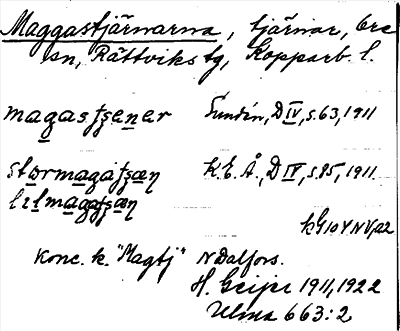 Maggastjärnarna, tjärnar, Ore
sn, Rättviks tg, Kopparb. l.
magastʃener Lundin, D IV, s. 63, 1911
stormagatʃæn K.E.Å., D IV, s. 85, 1911.
lɪlmagatʃæn
kG10YNVa2
konc. k. "Magtj" N Dalfors.
H. Geijer 1911, 1922
Ulma 663:2